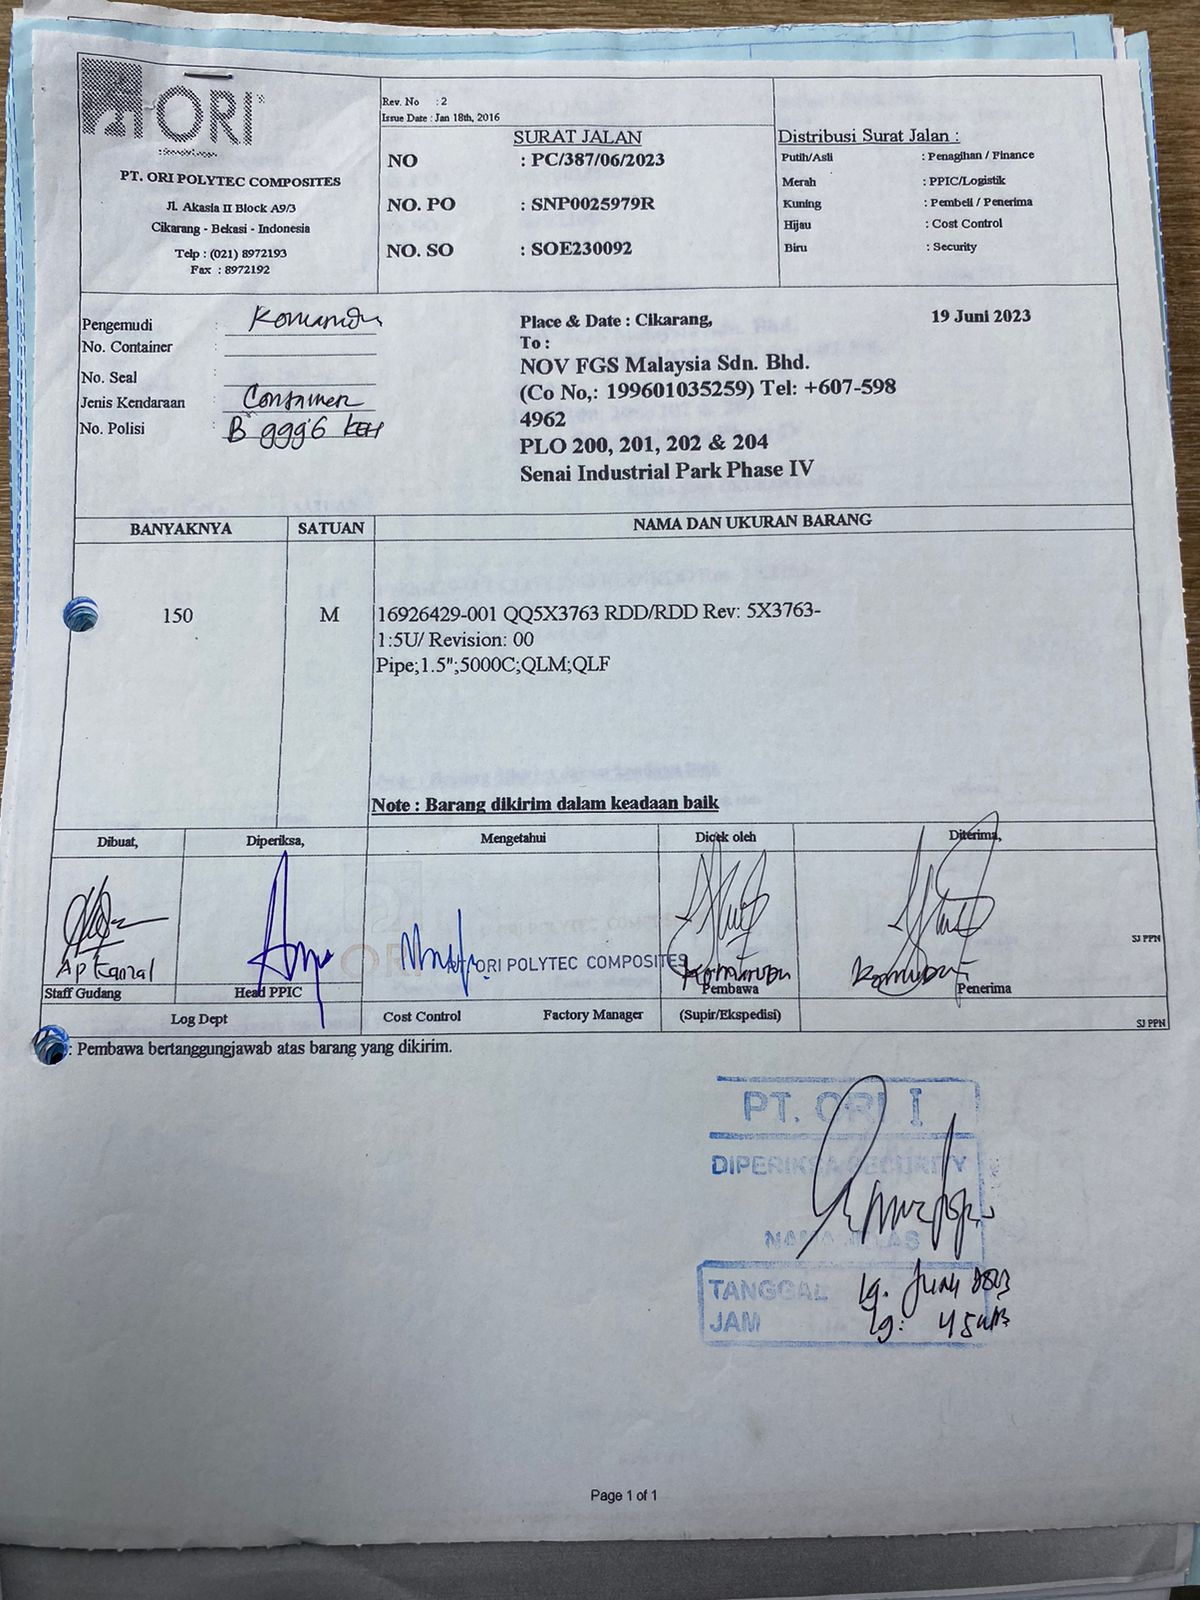 ORI
PT. ORI POLYTEC COMPOSITES
Jl. Akasia II Block A9/3
Cikarang - Bekasi - Indonesia
Telp : (021) 8972193
Fax : 8972192
Rev. No : 2
Issue Date : Jan 18th, 2016
SURAT JALAN
NO : PC/387/06/2023
NO. PO : SNP0025979R
NO. SO : SOE230092
Distribusi Surat Jalan :
Putih/Asli : Penagihan / Finance
Merah : PPIC/Logistik
Kuning : Pembeli / Penerima
Hijau : Cost Control
Biru : Security
Pengemudi :
No. Container :
No. Seal :
Jenis Kendaraan :
No. Polisi :
Place & Date : Cikarang, 19 Juni 2023
To :
NOV FGS Malaysia Sdn. Bhd.
(Co No,: 199601035259) Tel: +607-598
4962
PLO 200, 201, 202 & 204
Senai Industrial Park Phase IV
BANYAKNYA SATUAN NAMA DAN UKURAN BARANG
150 M 16926429-001 QQ5X3763 RDD/RDD Rev: 5X3763-
1:5U/ Revision: 00
Pipe;1.5";5000C;QLM;QLF
Note : Barang dikirim dalam keadaan baik
Dibuat, Diperiksa, Mengetahui Dicek oleh Diterima,
SJ PPN
PT. ORI POLYTEC COMPOSITES
Staff Gudang Head PPIC Pembawa Penerima
Log Dept Cost Control Factory Manager (Supir/Ekspedisi)
SJ PPN
: Pembawa bertanggungjawab atas barang yang dikirim.
PT. ORI
DIPERIKSA SECURITY
NAMA JELAS
TANGGAL 19. Juni 2023
JAM
Page 1 of 1